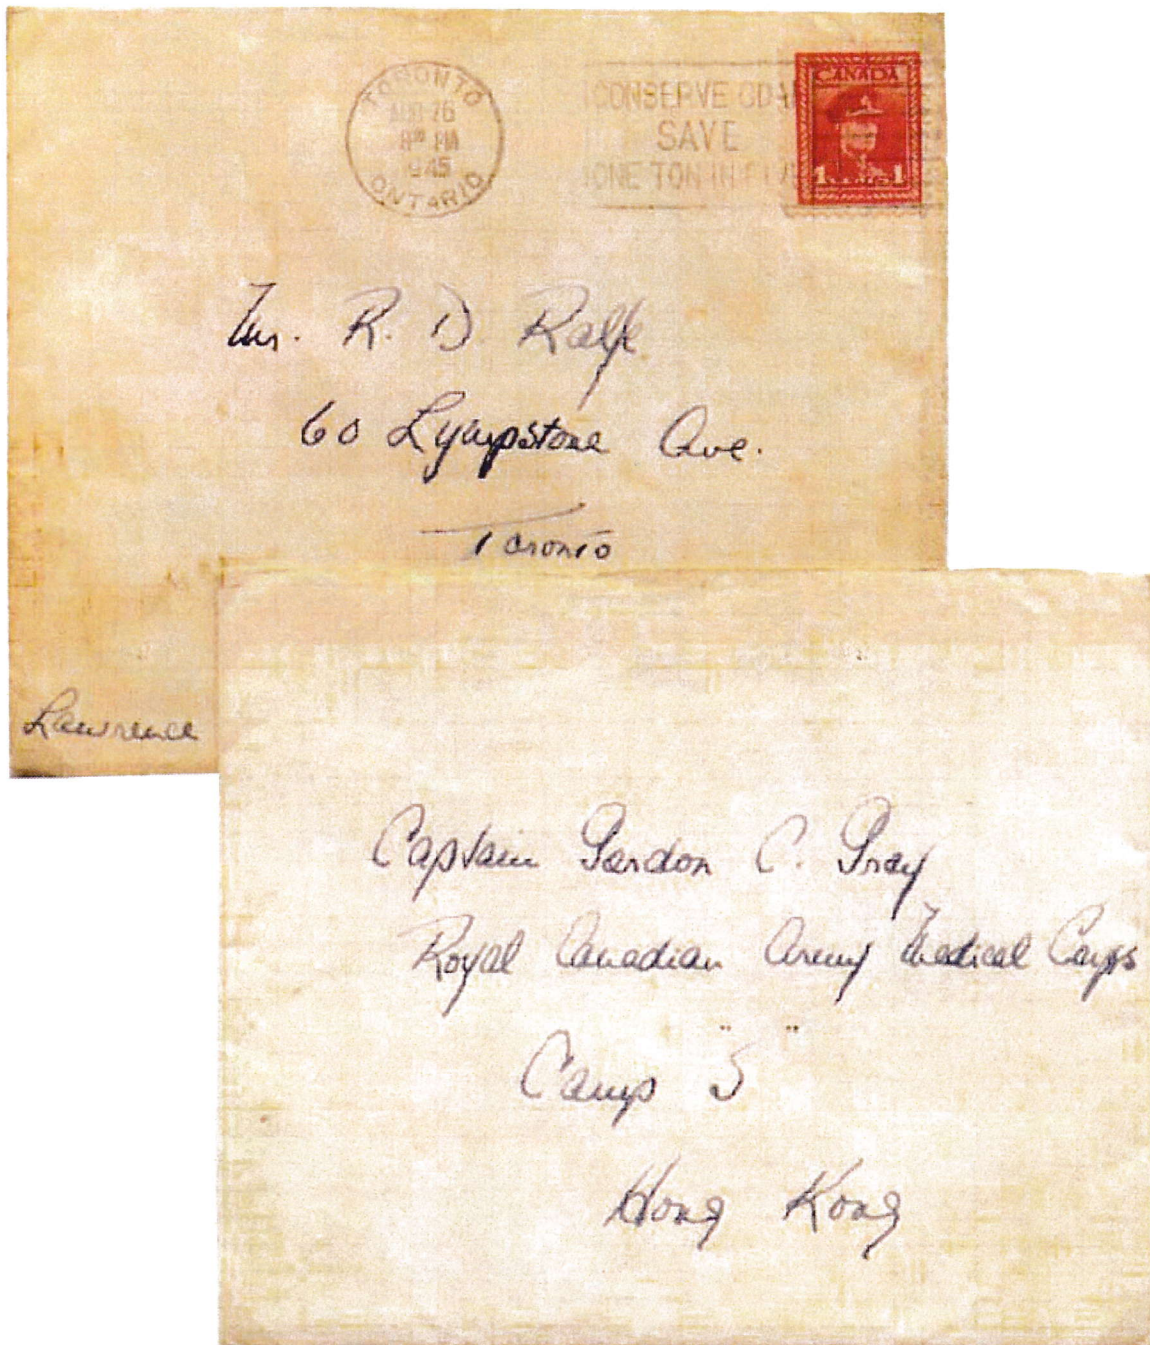 TORONTO
AUG 26
8 PM
1945
ONTARIO
CONSERVE COAL
SAVE
ONE TON IN FIVE
CANADA
1 1
Mr. R. D. Ralfe
60 Lympstone Ave.
Toronto
Lawrence
Captain Gordon C. Gray
Royal Canadian Army Medical Corps
Camp "S"
Hong Kong